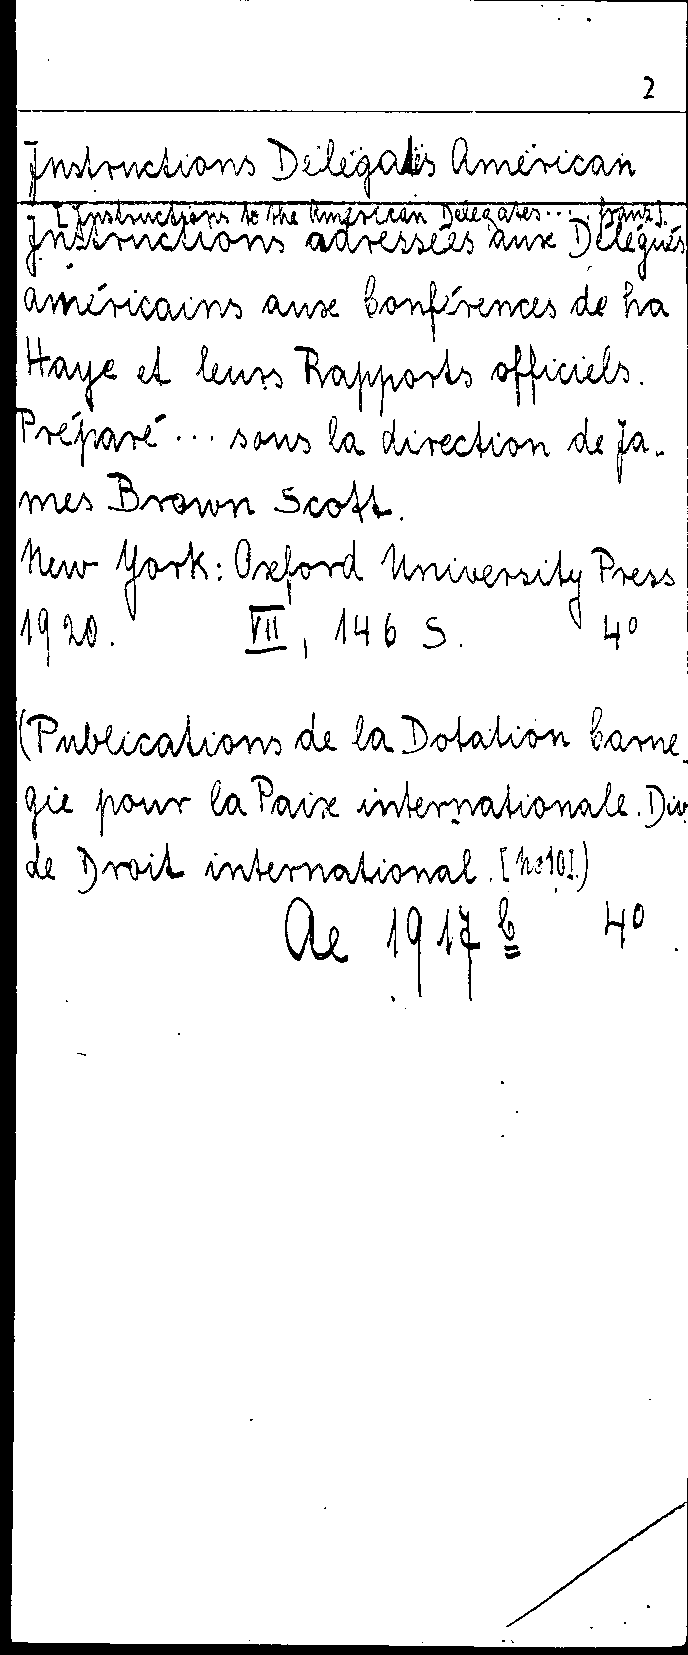 2
Instructions Délégates American
[Instructions to the American Delegates... franz.].
Instructions adressées aux Délégués
américains aux Conférences de La
Haye et leurs Rapports officiels.
Préparé ... sous la direction de Ja-
mes Brown Scott.
New York: Oxford University Press
1920. VII, 146 S. 4°
(Publications de la Dotation Carne-
gie pour la Paix internationale. Div
de Droit international. [No 10].)
Ae 1917 b 4°